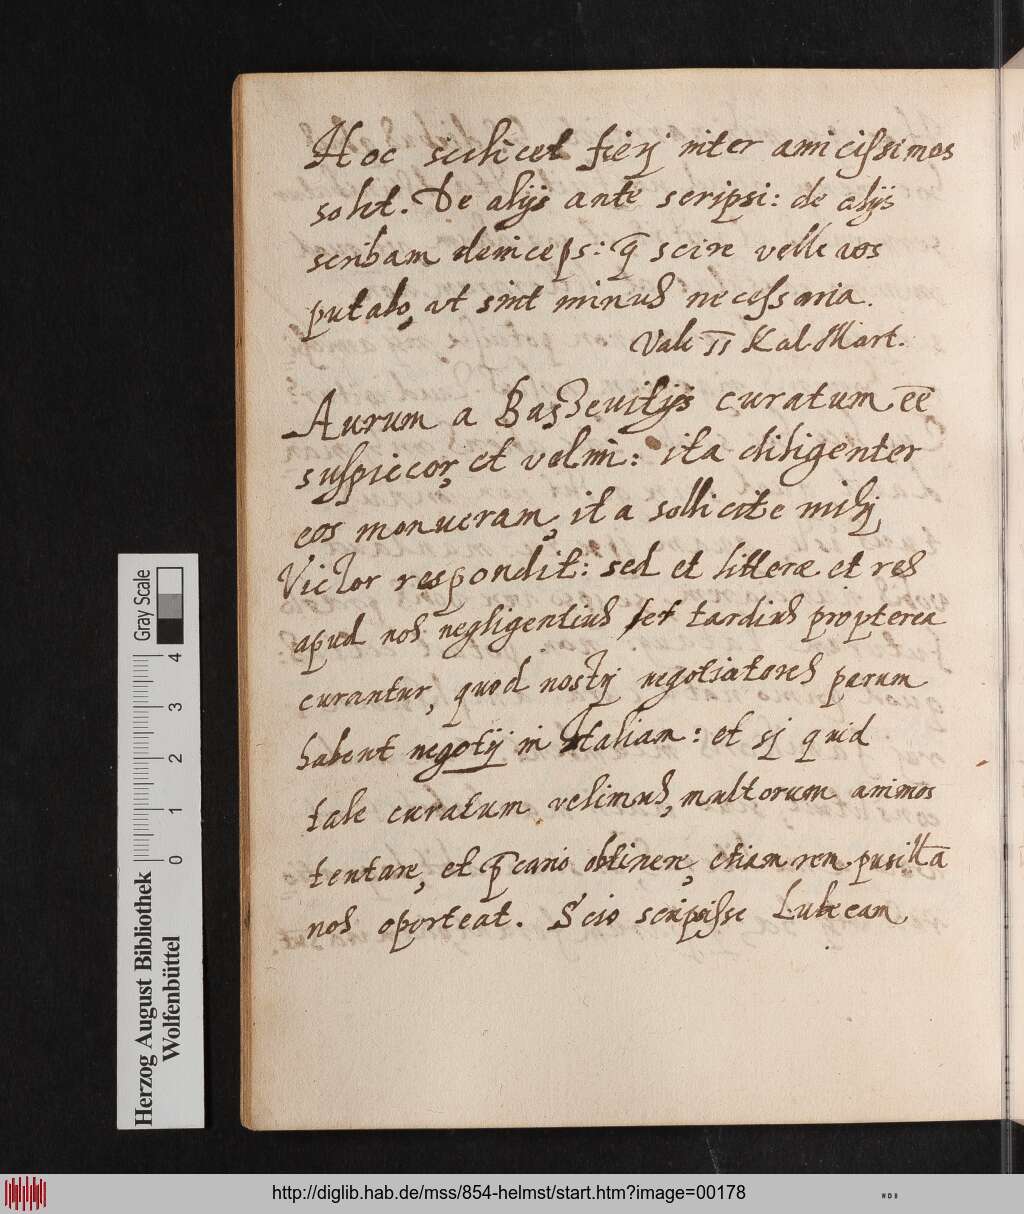 Hoc scilicet fierj inter amicissimos
solet. De alijs ante scripsi: de alijs
scribam deinceps: q̄ scire velle vos
putabo, vt sint minus necessaria.
Vale II Kal. Mart.
Aurum a curatum eē
suspicor, et velim: ita diligenter
eos monueram, ita sollicite mihj
Victor respondit: sed et litteræ et res
apud nos negligentius et tardius propterea
curantur, quod nostrj negotiatores parum
habent negotij in Italiam: et sj quid
tale curatum velimus, multorum animos
tentare, et p̄cario obtinere, etiam rem pusillā
nos oporteat. Scio scripsisse Lubecam
Gray Scale
0 1 2 3 4
Herzog August Bibliothek
Wolfenbüttel
http://diglib.hab.de/mss/854-helmst/start.htm?image=00178